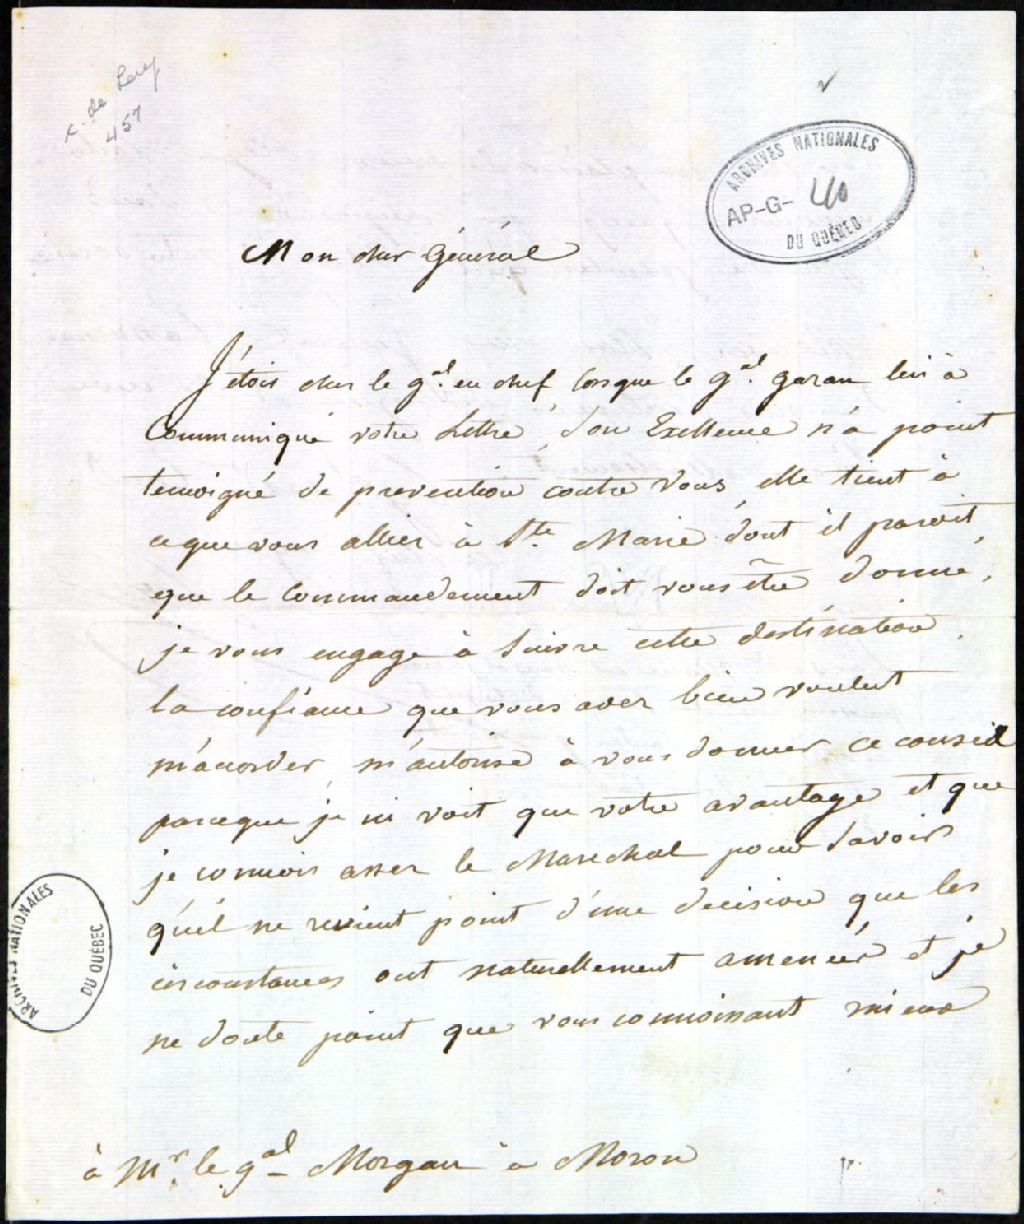 c. de Lery
457
ARCHIVES NATIONALES
AP-G- 40
DU QUÉBEC
Mon cher Général
J'étois chez le gal. en chef lorsque le gal. garau lui à
Communiqué votre Lettre, Son Exellence n'à point
temoigné de prevention contre Vous, elle tient à
ceque vous alliez à Ste. Marie dont il paroit
que le Commandement doit vous être donné,
je vous engage à Suivre cette destination.
la confiance que vous avez bien voulut
m'accorder, m'autorise à vous donner ce conseil
parceque je ni voit que votre avantage et que
je connois assez le Marechal pour Savoir
qu'il ne revient point d'une decision que les
circonstances ont naturellement amenées et je
ne doute point que vous connoissant mieux
ARCHIVES NATIONALES
DU QUÉBEC
à Mr. le gal Morgan à Moron